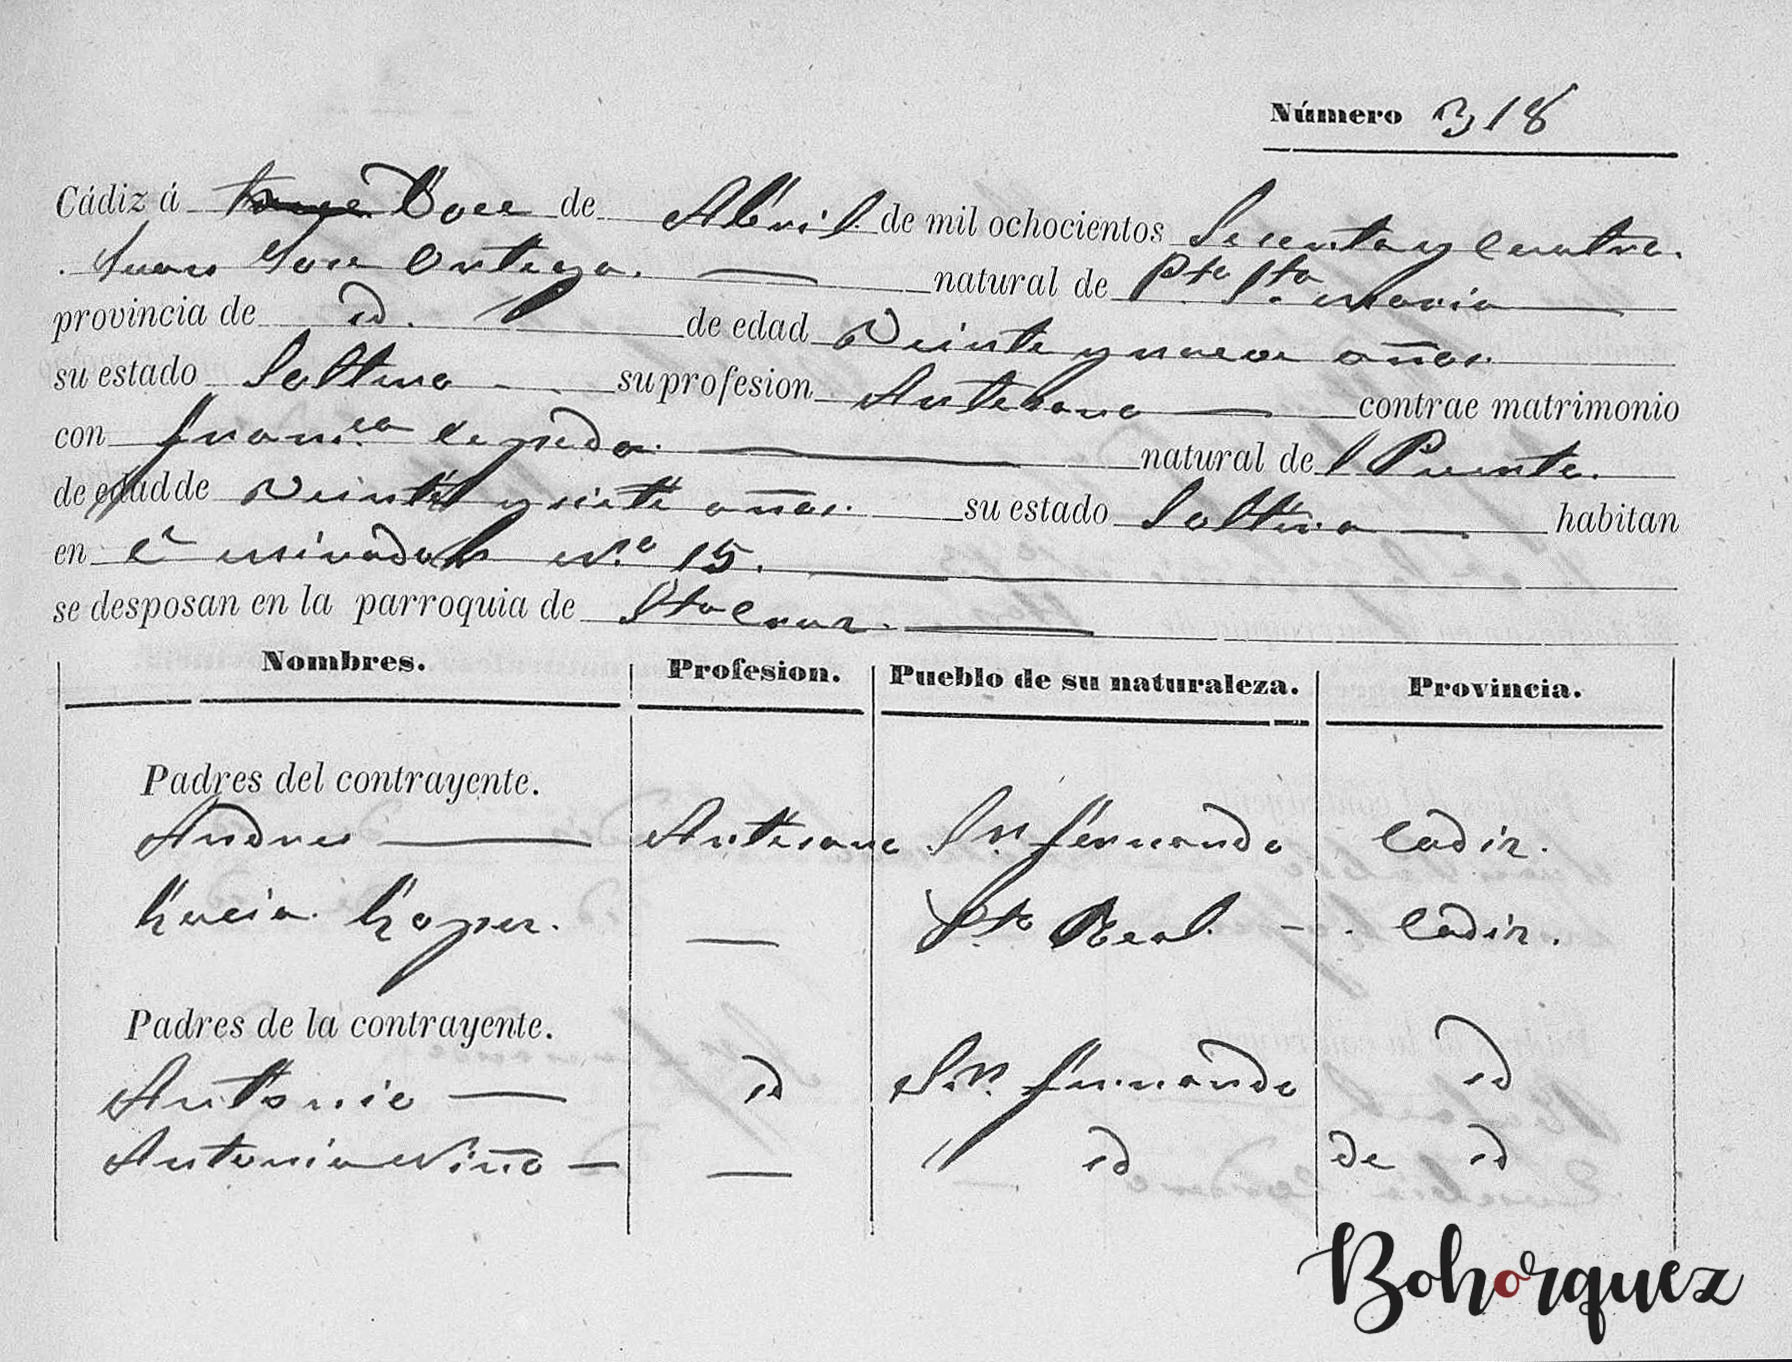 Número 318
Cádiz á Doce de Abril de mil ochocientos Secenta y Cuatro.
Juan Jose Ortega. natural de Pto Sta Maria
provincia de id. de edad Veinte y nueve años.
su estado Soltero su profesion Artesano contrae matrimonio
con Franca Cepeda. natural de Puente.
de edad de Veinte y siete años. su estado Soltera habitan
en Ce N.º 15.
se desposan en la parroquia de Sta Cruz.
Nombres. Profesion. Pueblo de su naturaleza. Provincia.
Padres del contrayente.
Andres Artesano Sn. Fernando Cadiz.
Lucia Lopez. Pto Real. Cadiz.
Padres de la contrayente.
Antonio id Sn. Fernando id
Antonia Niño id de id
Bohorquez